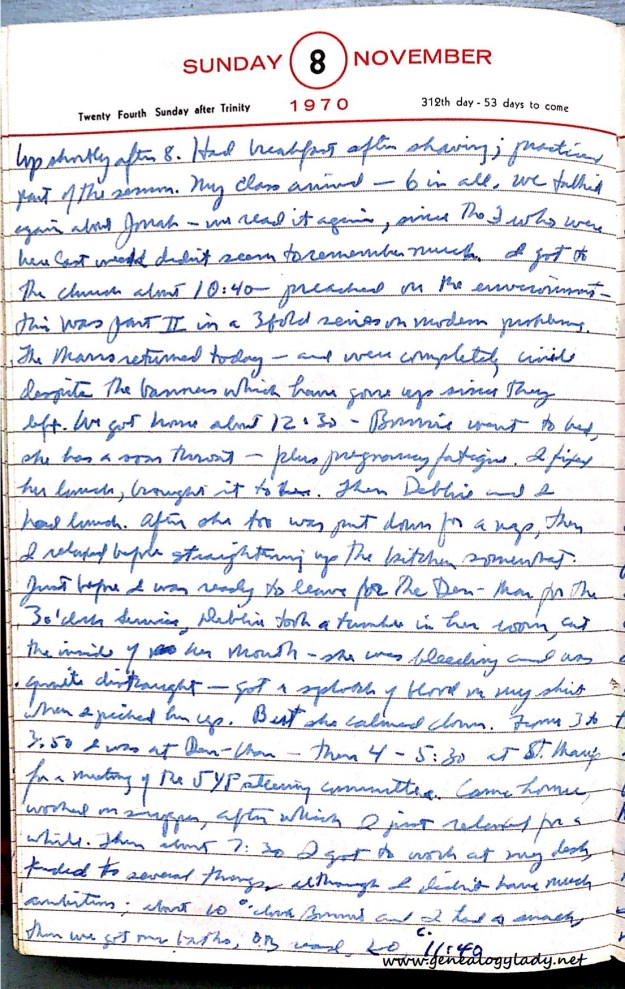 SUNDAY 8 NOVEMBER
Twenty Fourth Sunday after Trinity 1970 312th day - 53 days to come
Up shortly after 8. Had breakfast after shaving; practiced
part of the sermon. My class arrived — 6 in all. We talked
again about Jonah — we read it again, since the 3 who were
here last week didn't seem to remember much. I got to
the church about 10:40 — preached on the environment —
this was part II in a 3 fold series on modern problems.
The Manns returned today — and were completely civil
despite the banners which have gone up since they
left. We got home about 12:30 — Bonnie went to bed,
she has a sore throat — plus pregnancy fatigue. I fixed
her lunch, brought it to her. Then Debbie and I
had lunch. After she too was put down for a nap, then
I relaxed before straightening up the kitchen somewhat.
Just before I was ready to leave for the Den-Mar for the
3 o'clock service, Debbie took a tumble in her room, cut
the inside of her mouth — she was bleeding and was
quite distraught — got a splotch of blood on my shirt
when I picked her up. But she calmed down. From 3 to
3:50 I was at Den-Mar — then 4 - 5:30 at St. Mary's
for a meeting of the steering committee. Came home,
worked on supper, after which I just relaxed for a
while. Then about 7:30 I got to work at my desk,
tended to several things, although I didn't have much
ambition; about 10 o'clock Bonnie and I had a snack,
then we got our baths, read, LO c. 11:40
www.genealogylady.net